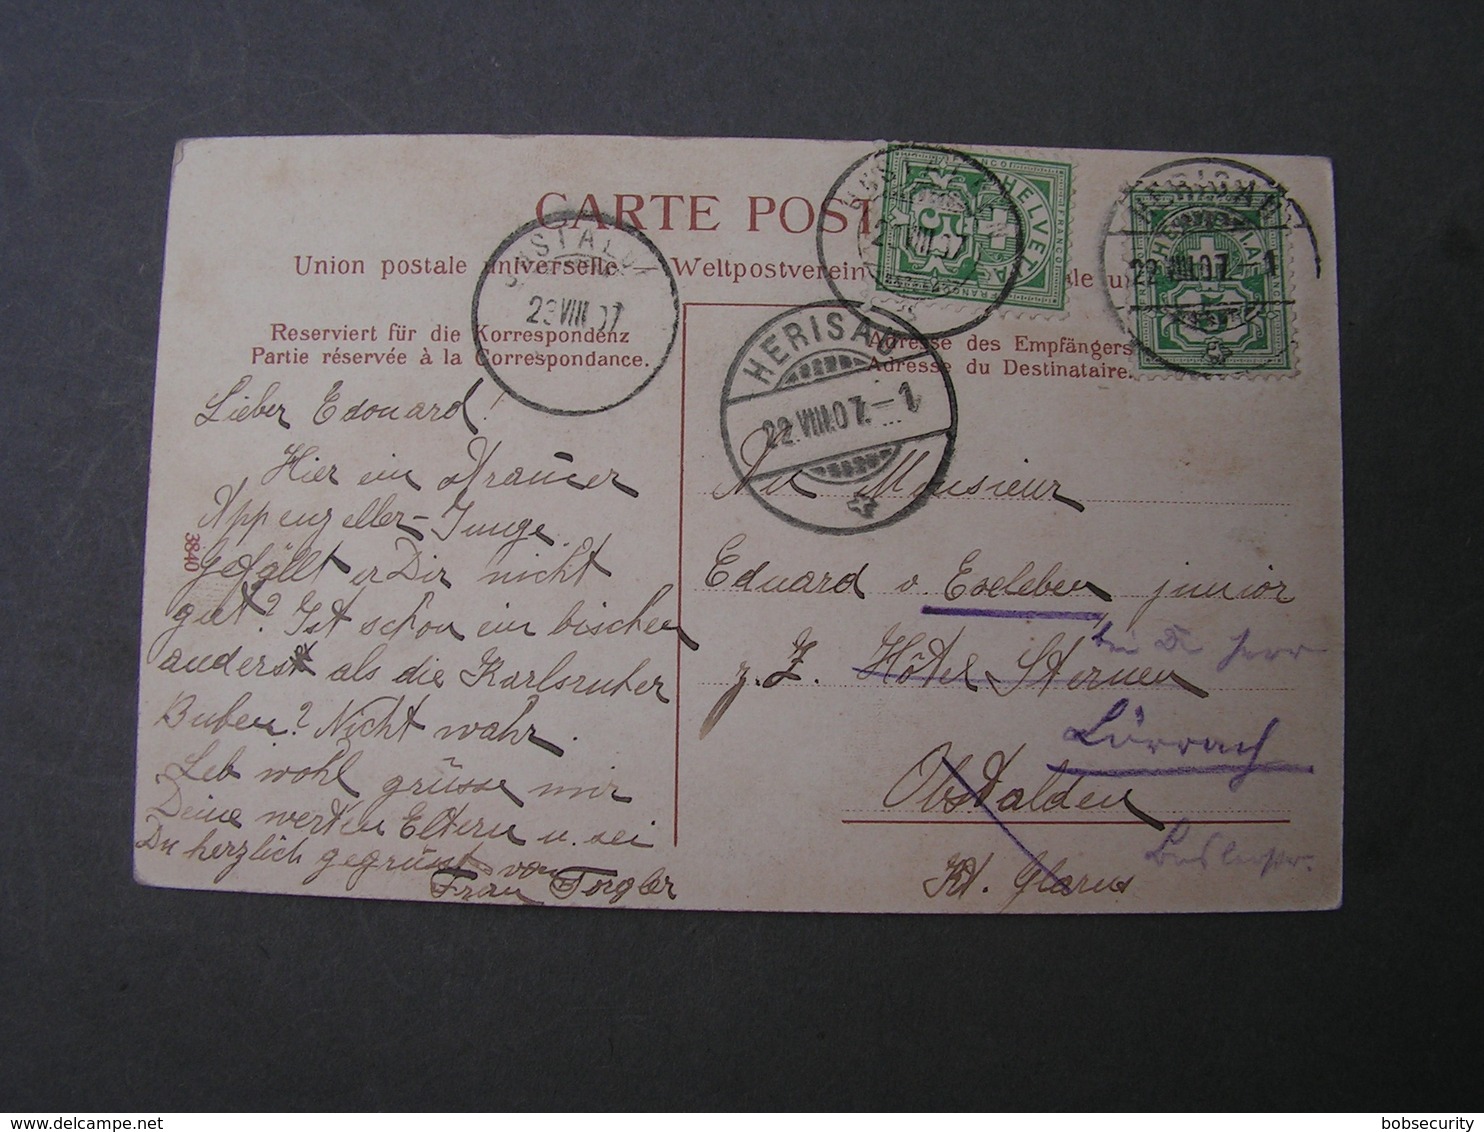 CARTE POST
Union postale universelle. Weltpostverein
Reserviert für die Korrespondenz
Partie réservée à la Correspondance.
Adresse des Empfängers
Adresse du Destinataire.
HERISAU
22.VIII.07.-1
HERISAU
22.VIII.07. 1
OBSTALDEN
23 VIII 07
HELVETIA
FRANCO
5
3840
Lieber Edouard!
Hier ein
Appenzeller-Junge.
Gefällt er Dir nicht
gut? Ist schon ein bischen
anders als die Karlsruher
Buben? Nicht wahr.
Leb wohl grüsse mir
Deine werten Eltern u. sei
Du herzlich gegrüsst von
Frau Torgler
Monsieur
Eduard v junior
z. Z. Hôtel Sternen
Lörrach
Obstalden
Kt. Glarus